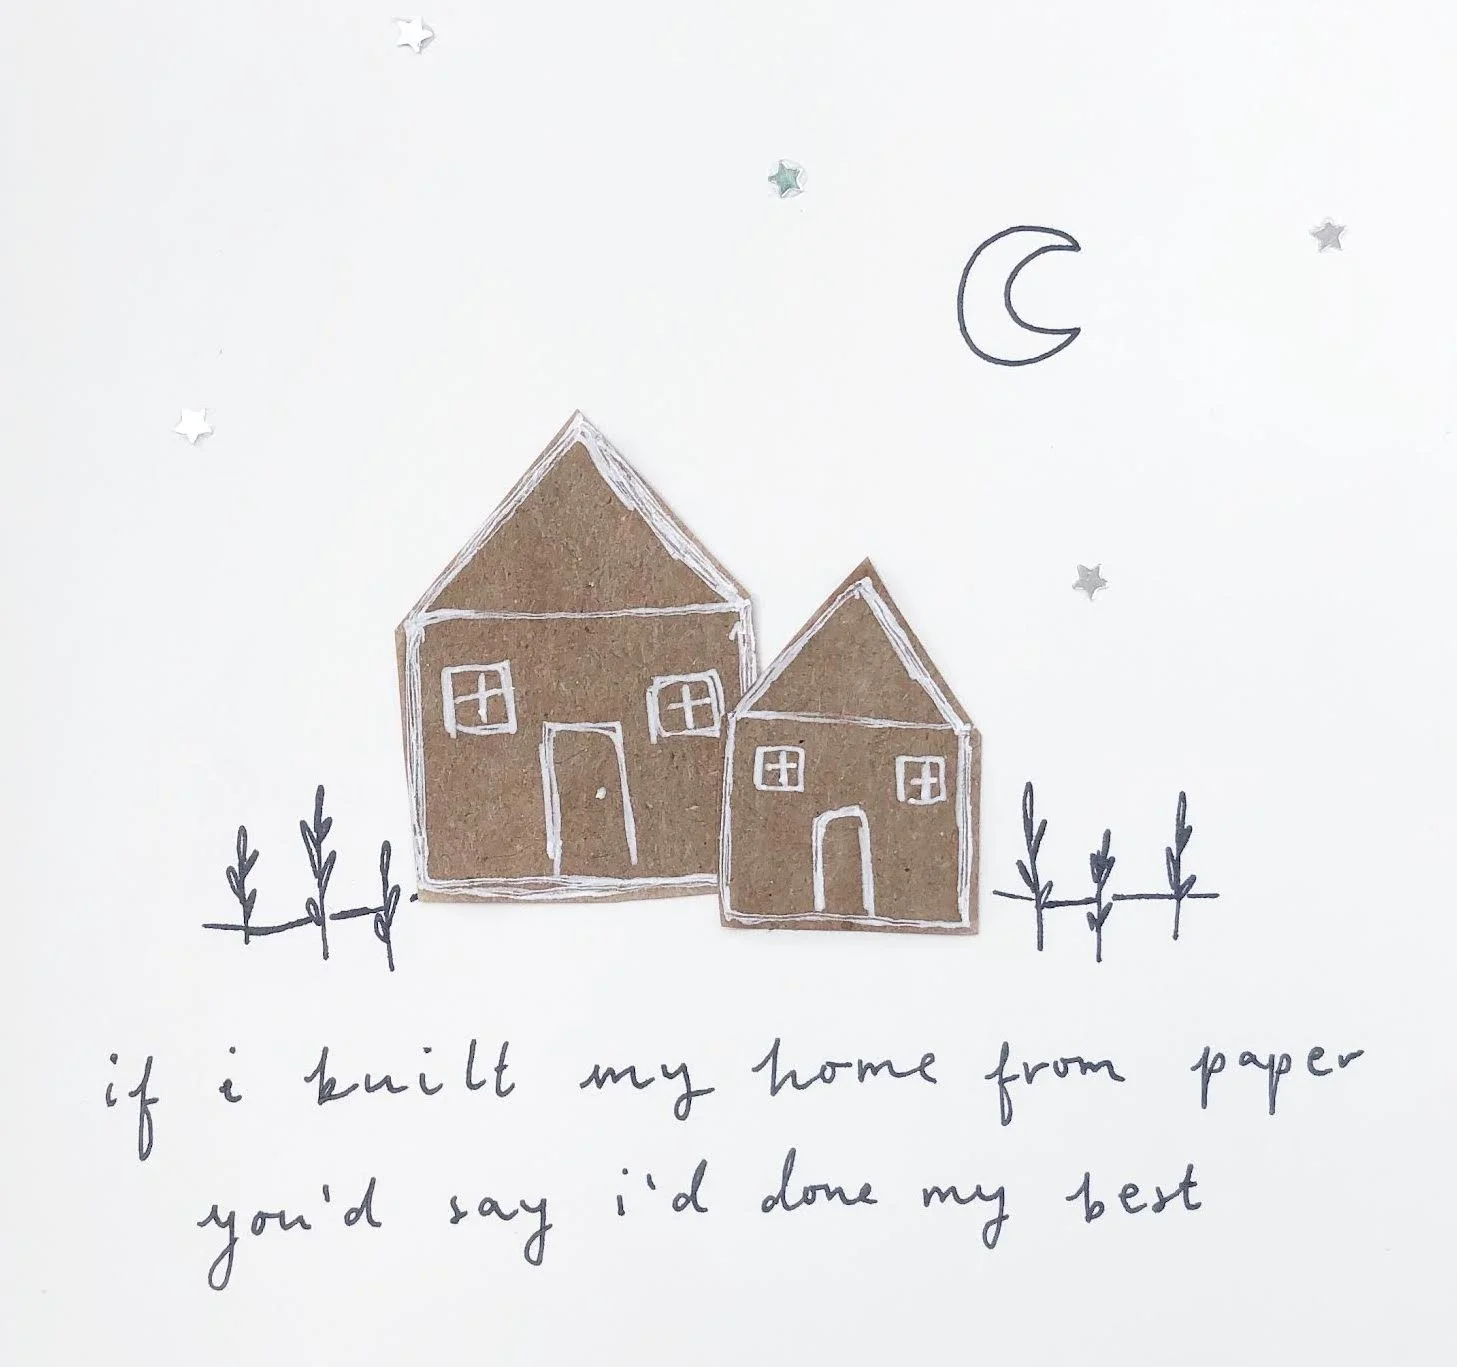 if i built my home from paper
you'd say i'd done my best